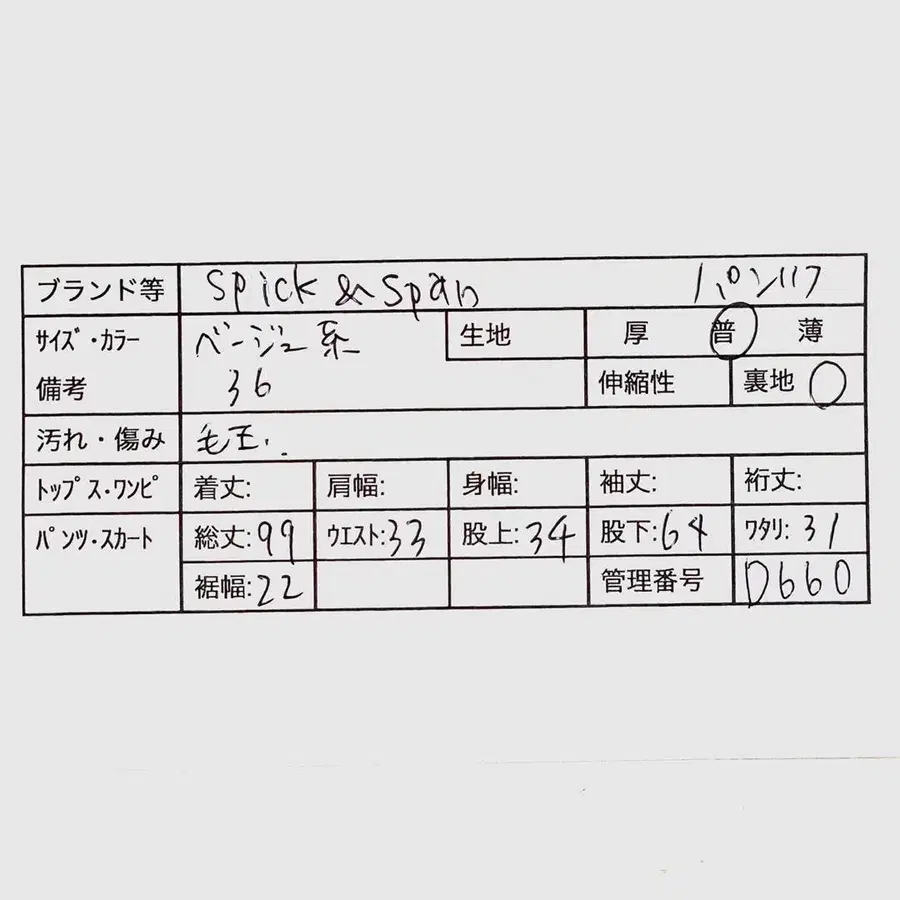 ブランド等 Spick & Span パンツ
サイズ・カラー ベージュ系 生地 厚 普 薄
備考 36 伸縮性 裏地 ○
汚れ・傷み 毛玉.
トップス・ワンピ 着丈: 肩幅: 身幅: 袖丈: 裄丈:
パンツ・スカート 総丈:99 ウエスト:33 股上:34 股下:64 ワタリ:31
裾幅:22 管理番号 D660